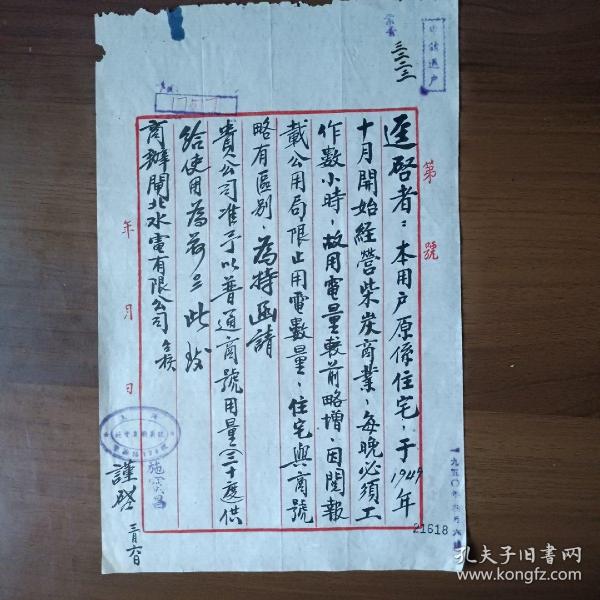 申請過户
三三三三
第 號
逕啓者：本用户原係住宅，于1949年
十月開始經營柴炭商業，每晚必須工
作數小時，故用電量較前略增，因閱報
載公用局限止用電數量，住宅與商號
略有區别，為特函請
貴公司准予以普通商號用量(三十度供
給使用為荷 此致
商辦閘北水電有限公司 台核
年 月 日
施寶昌
謹啓 三月六日
21618
孔夫子旧书网
www.kongfz.com